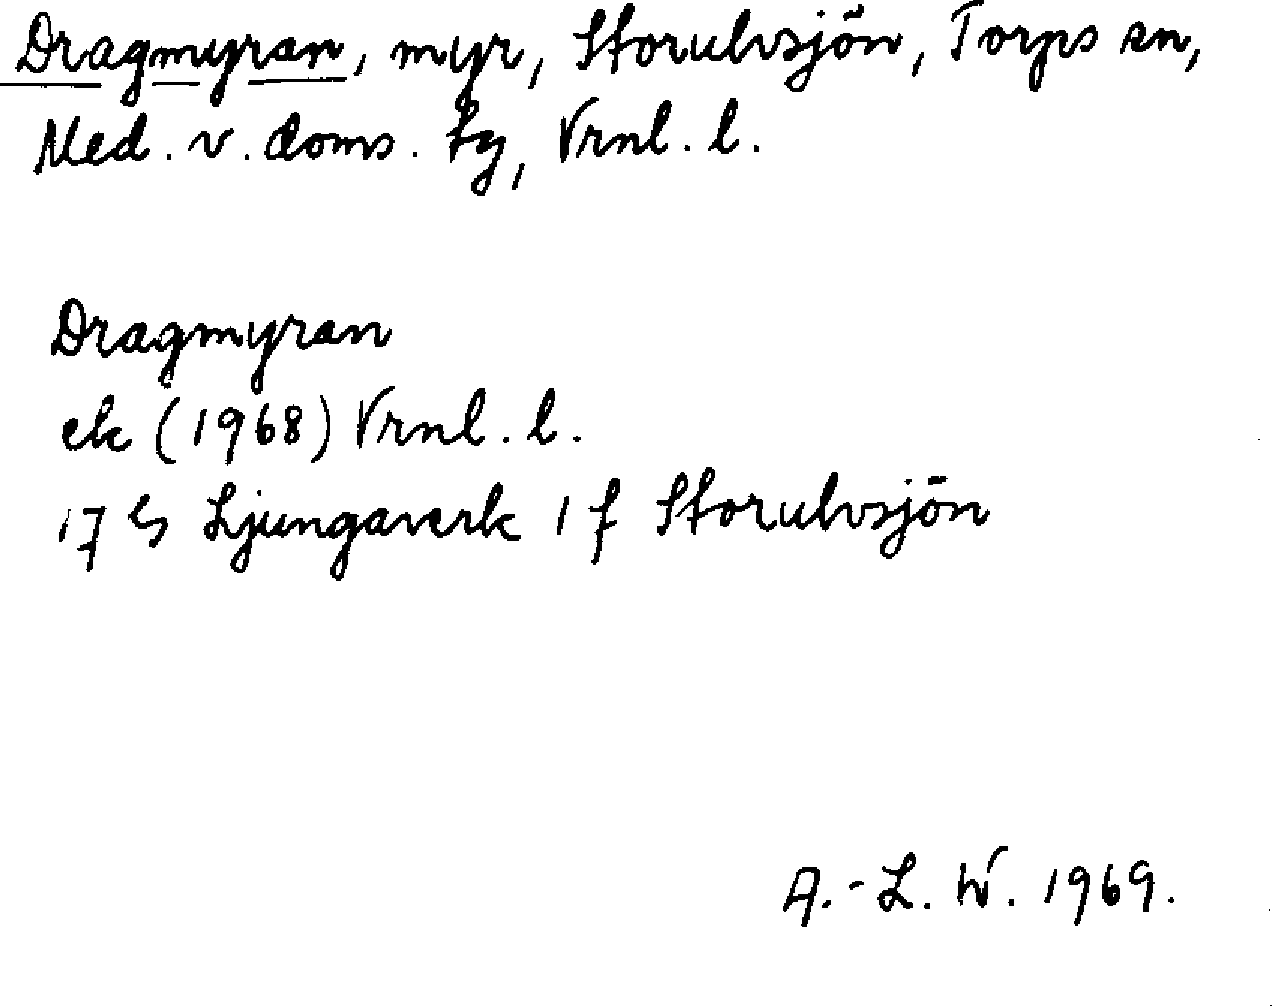 Dragmyran, myr, Storulvsjön, Torps sn,
Med. v. doms. tg, Vrnl. l.
Dragmyran
ek (1968) Vrnl. l.
17 G Ljungaverk 1 f Storulvsjön
A.-L. W. 1969.